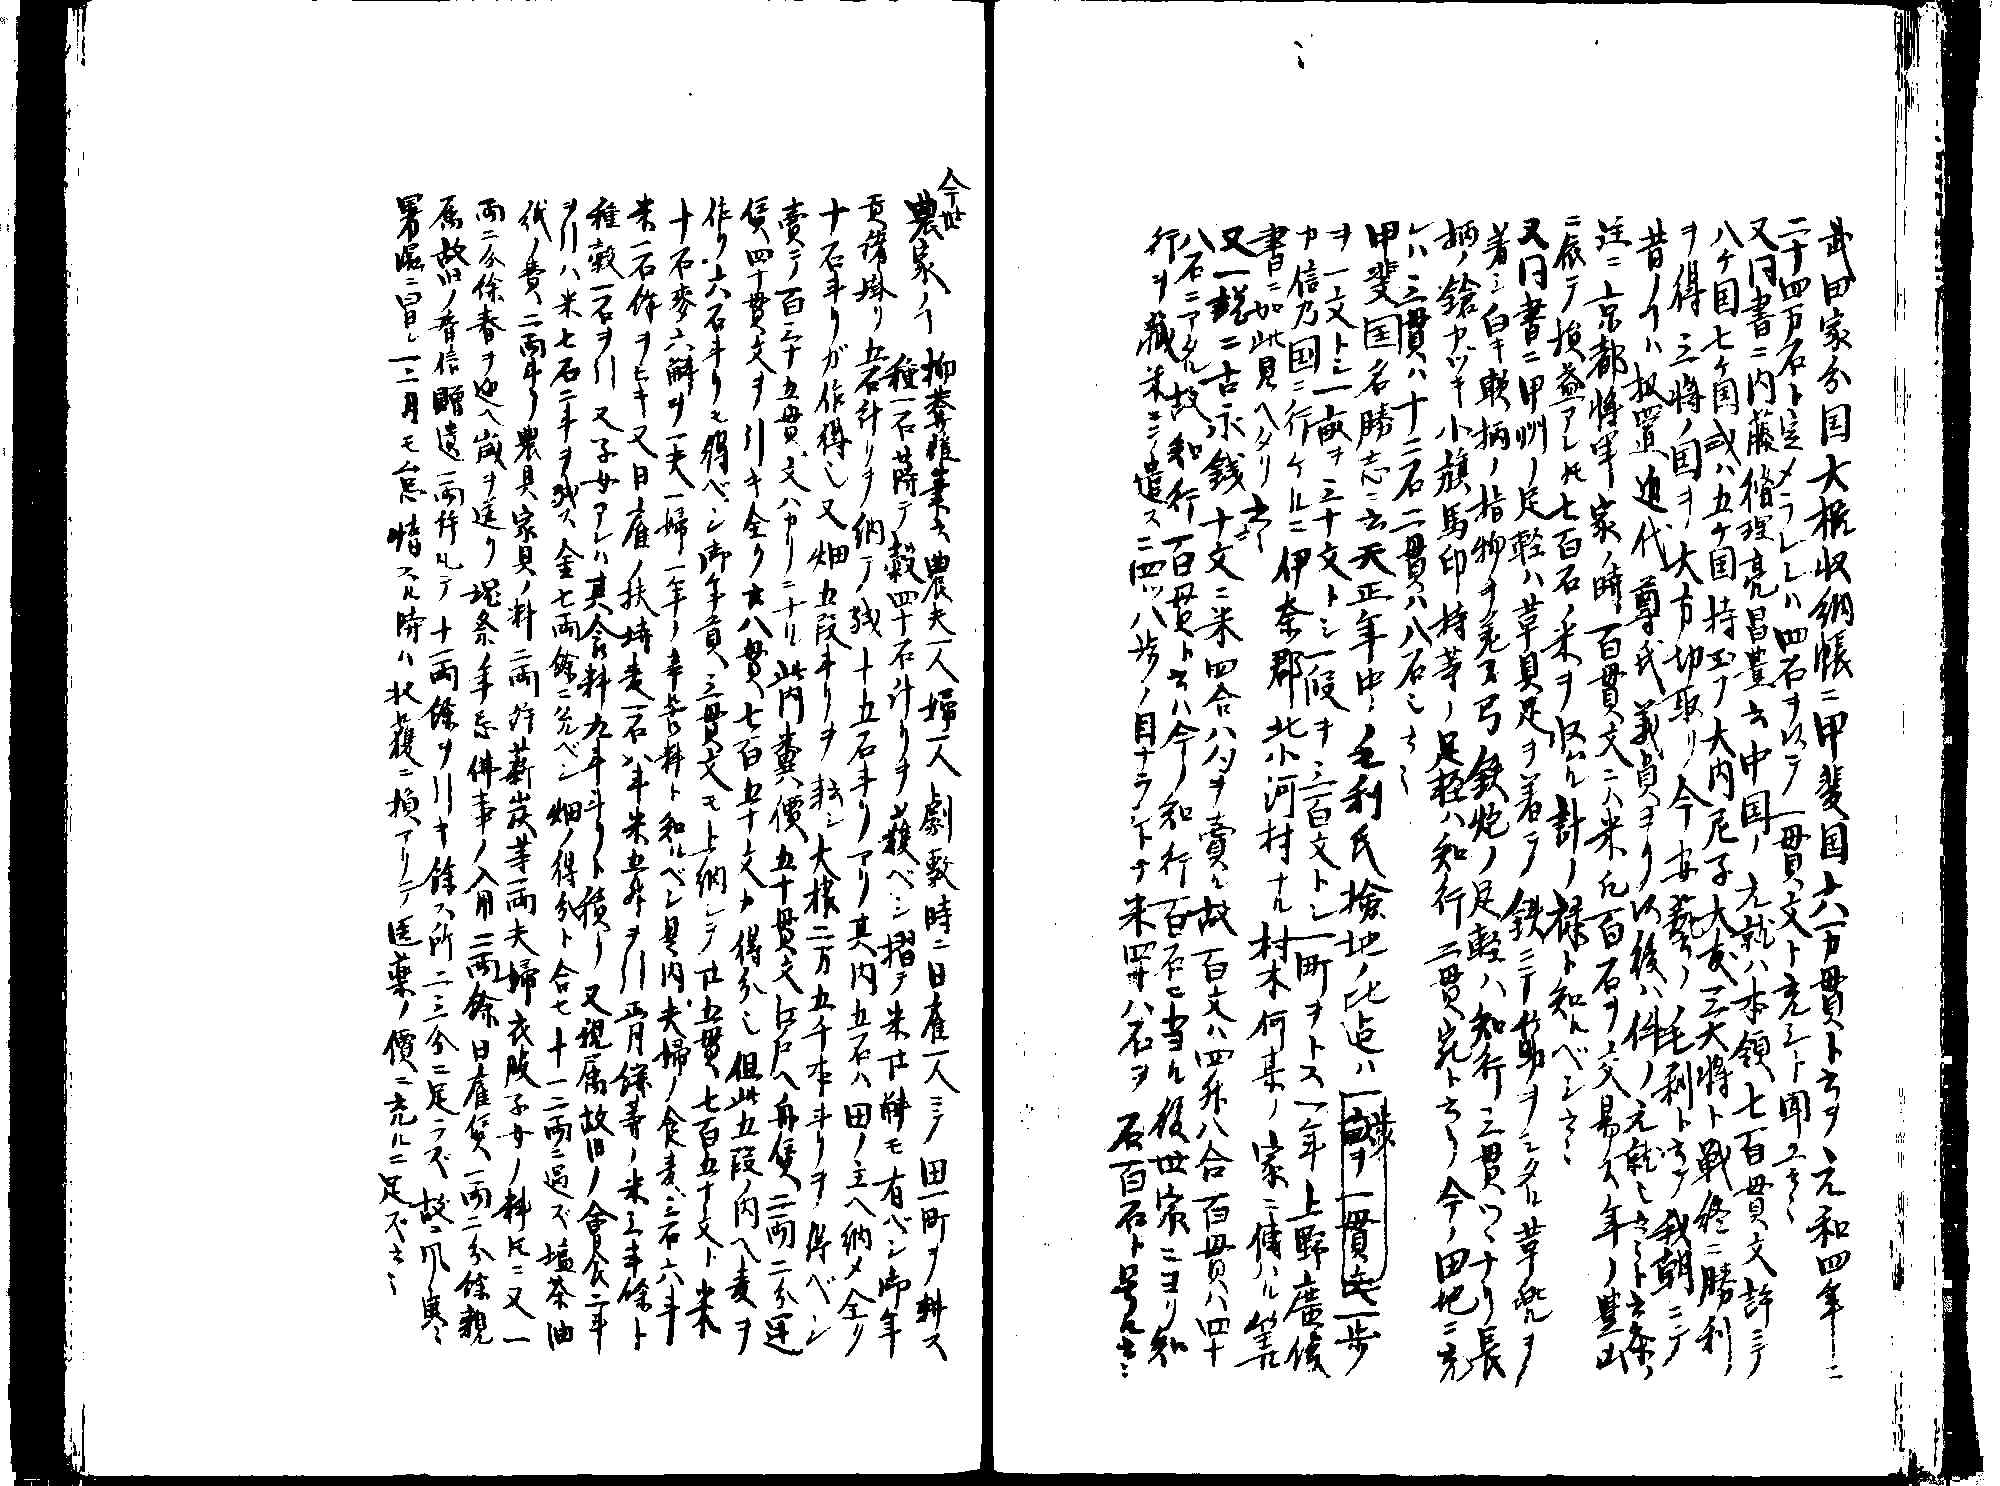 武田家分国大概収納帳ニ甲斐国六万貫ト云ヲ元和四年ニ
二十四万石ト定メラレシハ四石ヲ以テ一貫文ト充シト聞ユ云々
又同書ニ内藤脩理亮昌豊云中国ノ元就ハ本領七百貫文許ニテ
八ケ国七ケ国或ハ五ケ国持玉フ大内尼子大友三大将ト戦終ニ勝利
ヲ得三将ノ国ヲ大方切取リ今安藝ノ毛利ト云テ我朝ニテ
昔ノ人ハ扨置近代尊氏義貞ヨリ以後ハ件ノ元就ト云々ト云条ノ
注ニ京都将軍家ノ時百貫文ニハ米凡百石ヲ交易ス年ノ豊凶
ニ依テ損益アレ圧七百石ノ米ヲ収ムル計ノ禄ト知ルベシ云々
又同書ニ甲州ノ足軽ハ草具足ヲ着テ鉄ニテ
著シ白キ ノ指物ヲ 弓鉄炮ノ足軽ハ知行三貫ツヽナリ長
柄ノ鎗カツキ小旗馬印持等ノ足軽ハ知行二貫宛ト云々今ノ田地ニ充
レハ三貫ハ十二石二貫ハ八石也云々
甲斐国名勝志ニ云天正年中ノ毛利氏検地ノ比迄ハ一歩ヲ一貫文一歩
ヲ一文トシ一畝ヲ三十文トシ一段ヲ三百文トシ一町ヲトス一年上野廣俊
カ信乃国ニ行ケルニ伊奈郡北小河村ナル村木何某ノ家ニ傳ハル
書ニ如此見ヘタリ云々
又一説ニ古永銭十文ニ米四合八夕ヲ賣ル故百文ハ四升八合百貫ハ四十
八石ニアタル故知行百貫ト云ハ今ノ知行百石ニ当ル後世家ニヨリ知
行ヲ蔵米ニテ遣スニ四ツ八歩ノ目ナラシトテ米四十八石ヲ石百石ト号ル云々
今世
農家ノ 一人婦一人劇敷時ニ日雇一人ニテ田一町ヲ耕ス
種一石蒔テ穀四十石計リヲ獲ベシ摺テ米廿斛モ有ベシ御年
貢諸掛リ五石計リヲ納テ残十五石斗リアリ其内五石ハ田ノ主ヘ納メ全ク
十石斗リガ作得也又畑五段斗リヲ耘シ大根二万五千本斗リヲ得ベシ
賣テ百三十五貫文ハカリニナル此内糞ノ價五十貫文江戸ヘ舟賃二両二分運
賃四十貫文ヲ引キ全ク廿八貫七百五十文カ得分也但此五段ノ内ヘ麦ヲ
作リ六石斗リモ得ベシ御年貢三貫文モ上納シテ廿五貫七百五十文ト米
十石麥六斛ヅヽ一夫一婦一年ノ辛苦料ト知ルベシ其内夫婦ノ食麦三石六斗
米一石餘ヲヒキ又日雇ノ扶持麦一石ハ斗米五升ヲ引正月餘等ノ米三斗餘ト
種穀一石ヲ引又子女アレハ其食料九斗斗リト積リ又親属故旧ノ會食二斗
ヲ引ハ米七石二斗ヲ残ス金七両餘ニ充ベシ畑ノ得分ト合セ十一二両ニ過ズ塩茶油
紙ノ費二両斗リ農具家具ノ料二両斗薪炭等一両夫婦衣服子女ノ料凡ニ又一
両二分餘春ヲ迎ヘ歳ヲ送リ 佛事ノ入用二両餘日雇賃一両二分餘親
属故旧ノ音信贈遺一両餘凡テ十一両餘ヲ引キ餘ス所二三分ニ足ラズ故ニ風寒
暑濕ニ冒シ一二月モ怠惰スル時ハ 獲ニ損アリテ医藥ノ價ニ充ルニ足ズ云々